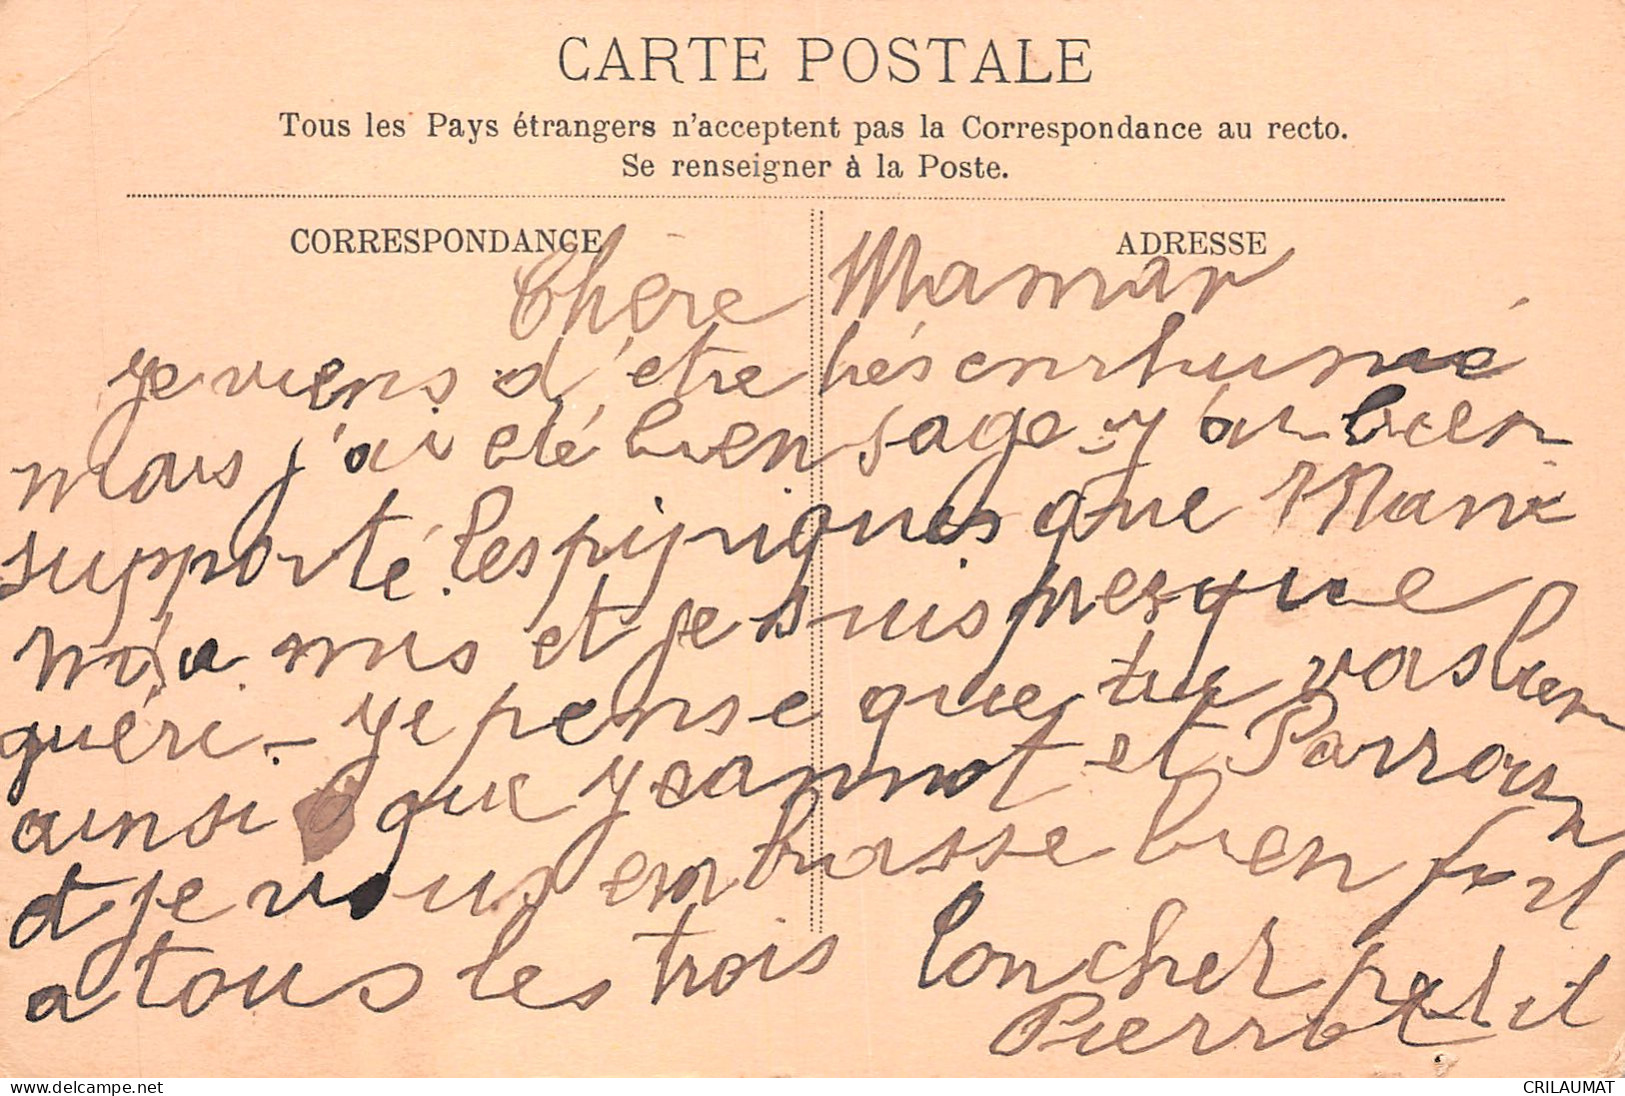 CARTE POSTALE
Tous les Pays étrangers n'acceptent pas la Correspondance au recto.
Se renseigner à la Poste.
CORRESPONDANCE
ADRESSE
Chère Maman
je viens d'être très enrhumé
mais j'ai été bien sage - j'ai bien
supporté les piqriques que Marie
m'a mis et je suis presque
guéri - je pense que tu vas bien
ainsi que jeannot et Parrain
et je vous embrasse bien fort
a tous les trois ton cher petit
Pierrot
www.delcampe.net
CRILAUMAT